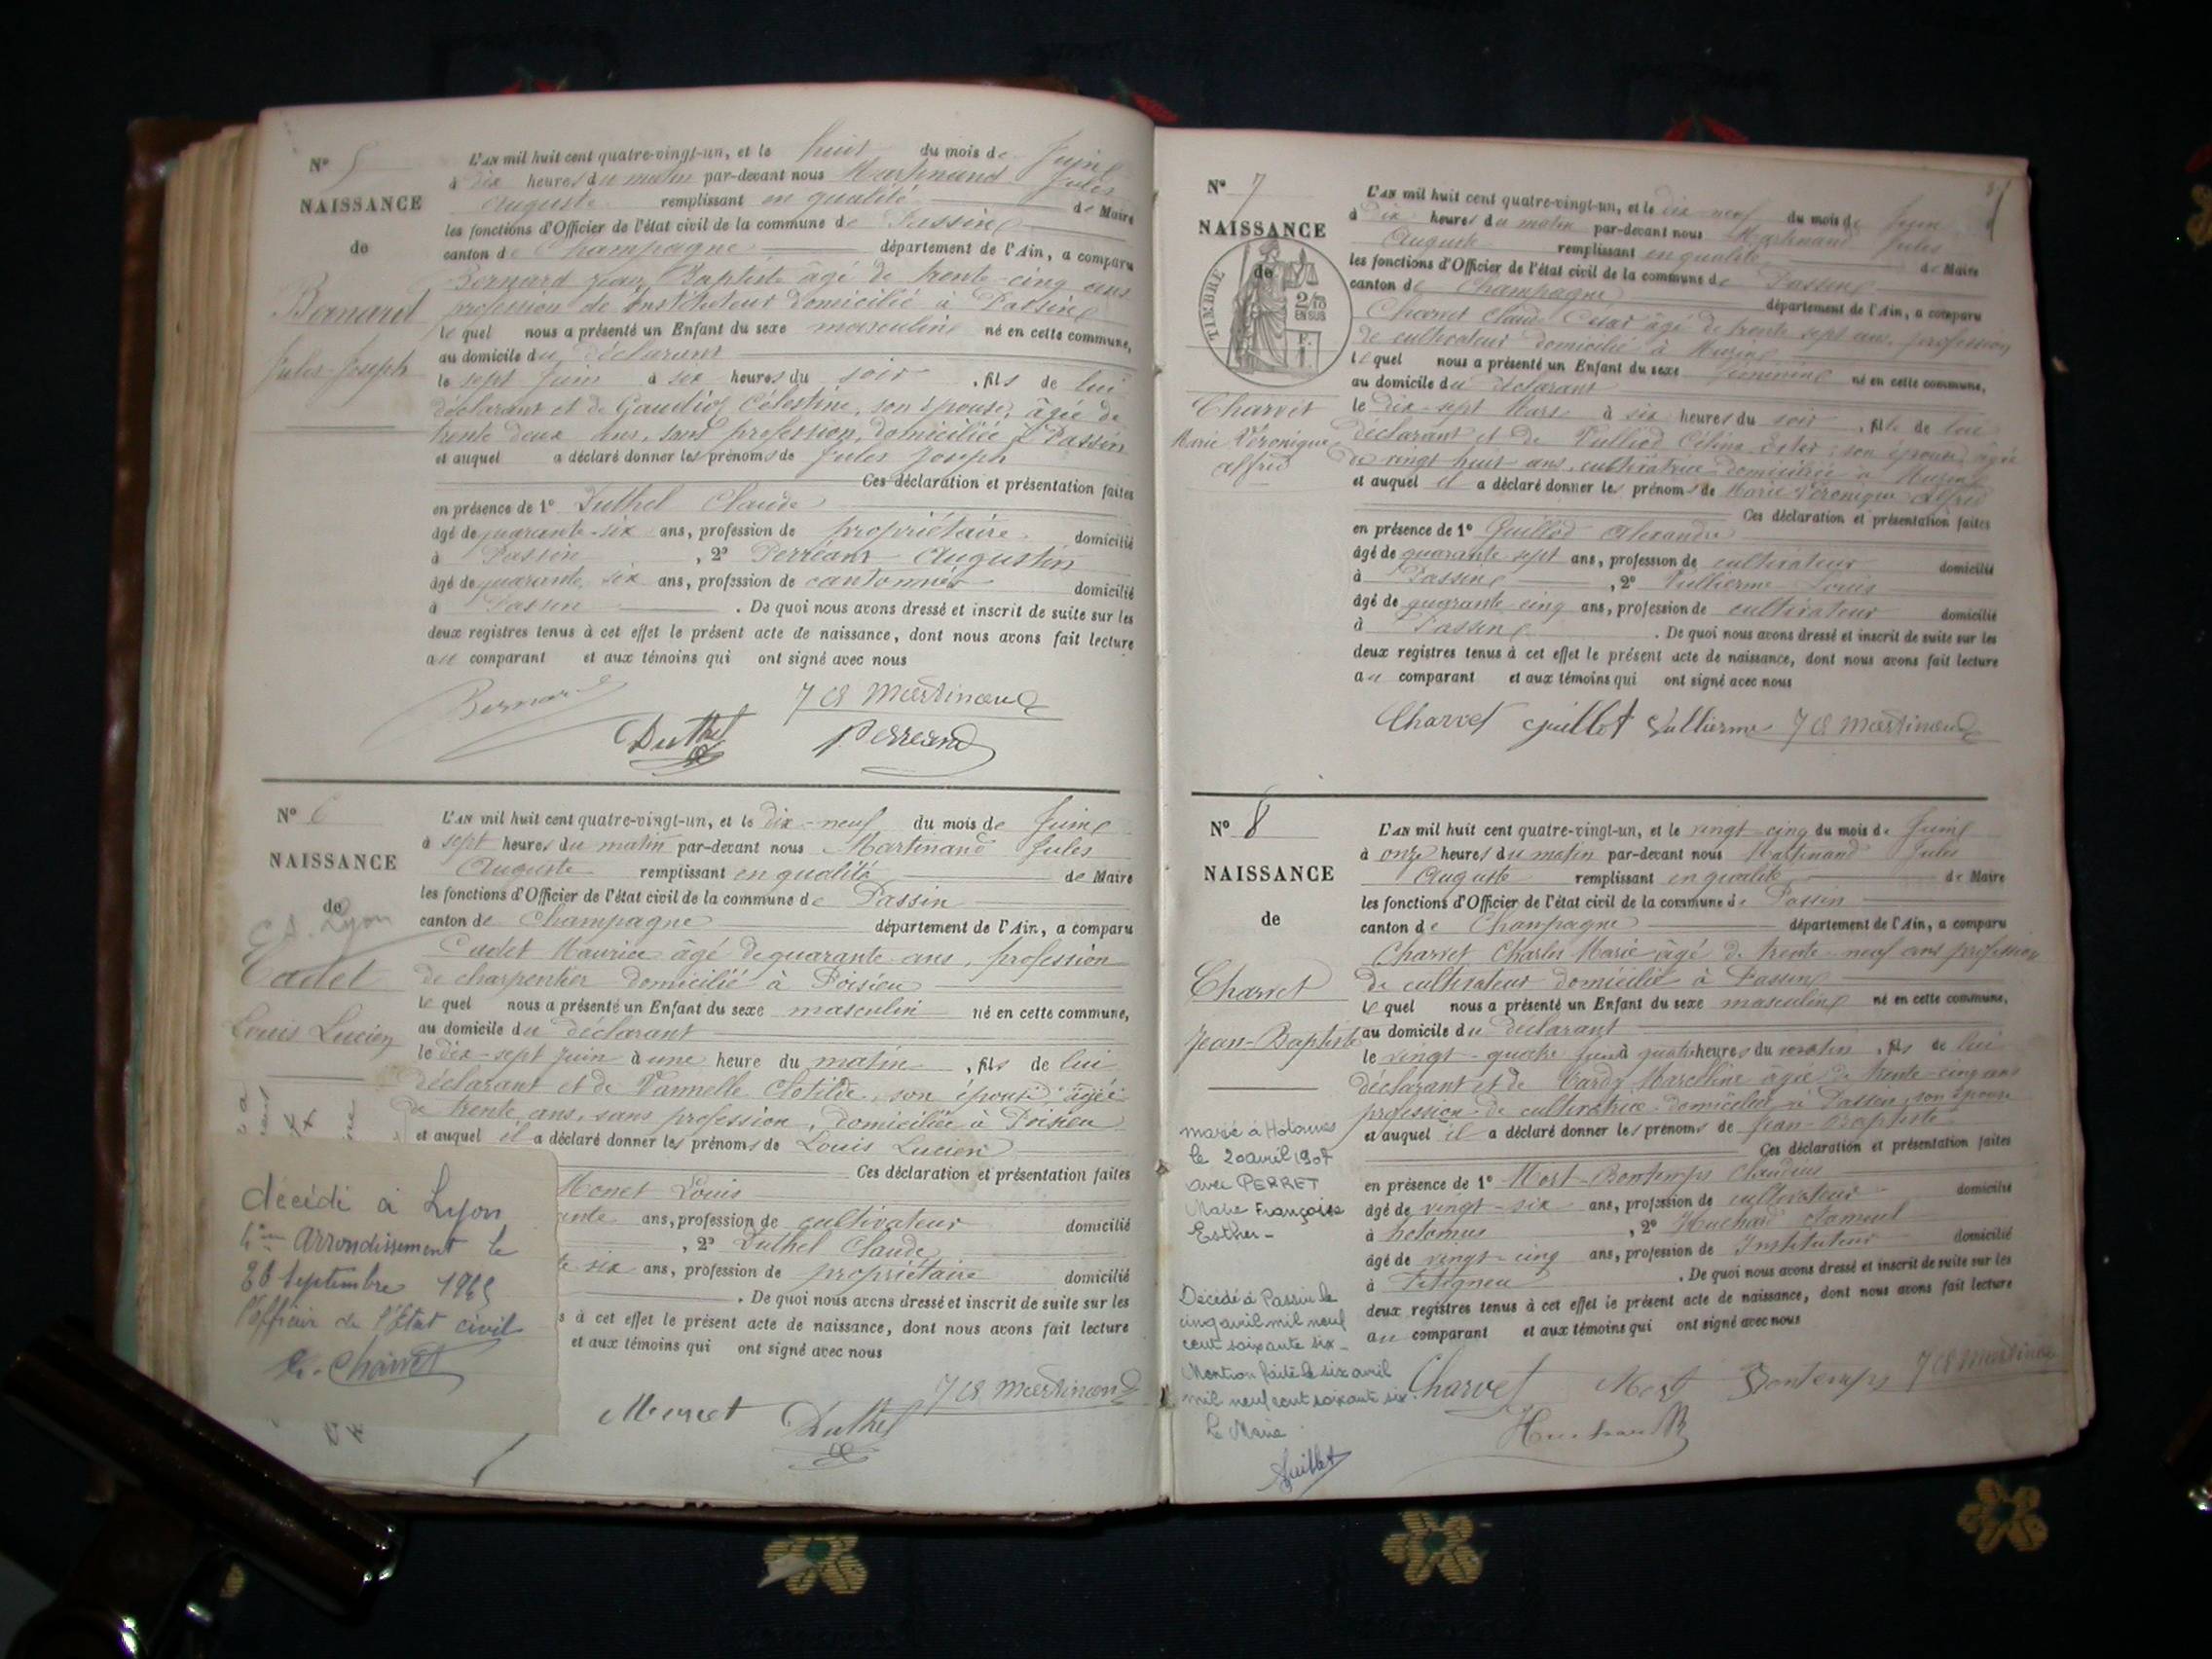 N° 5
NAISSANCE
de
Bernard
Jules Joseph
L'AN mil huit cent quatre-vingt-un, et le huit du mois de Juin
à dix heures du matin par-devant nous Martinand Jules
Auguste remplissant en qualité de Maire
les fonctions d'Officier de l'état civil de la commune de Passin
canton de Champagne département de l'Ain, a comparu
Bernard Jean Baptiste âgé de trente-cinq ans
profession de instituteur domicilié à Passin
lequel nous a présenté un Enfant du sexe masculin né en cette commune,
au domicile du déclarant
le sept Juin à six heures du soir, fils de lui
déclarant et de Gaudioz Célestine, son épouse, âgée de
trente deux ans, sans profession, domiciliée à Passin
et auquel a déclaré donner les prénoms de Jules Joseph
Ces déclaration et présentation faites
en présence de 1° Duthel Claude
âgé de quarante-six ans, profession de propriétaire domicilié
à Passin, 2° Perreant Augustin
âgé de quarante six ans, profession de cantonnier domicilié
à Passin. De quoi nous avons dressé et inscrit de suite sur les
deux registres tenus à cet effet le présent acte de naissance, dont nous avons fait lecture
au comparant et aux témoins qui ont signé avec nous
Bernard J A Martinand
Duthel Perreand
N° 6
NAISSANCE
de
Lyon
Cadet
Louis Lucien
L'AN mil huit cent quatre-vingt-un, et le dix-neuf du mois de Juin
à sept heures du matin par-devant nous Martinand Jules
Auguste remplissant en qualité de Maire
les fonctions d'Officier de l'état civil de la commune de Passin
canton de Champagne département de l'Ain, a comparu
Cadet Maurice âgé de quarante ans, profession
de charpentier domicilié à Poisieu
lequel nous a présenté un Enfant du sexe masculin né en cette commune,
au domicile du déclarant
le dix-sept Juin à une heure du matin, fils de lui
déclarant et de Vannelle Clotilde, son épouse âgée
de trente ans, sans profession, domiciliée à Poisieu
et auquel il a déclaré donner les prénoms de Louis Lucien
Ces déclaration et présentation faites
Monet Louis
ante ans, profession de cultivateur domicilié
, 2° Duthel Claude
te six ans, profession de propriétaire domicilié
. De quoi nous avons dressé et inscrit de suite sur les
s à cet effet le présent acte de naissance, dont nous avons fait lecture
et aux témoins qui ont signé avec nous
J A Martinand
Monet Duthel
décédé à Lyon
Arrondissement le
Septembre
l'officier de l'État civil
Charvet
N° 7
NAISSANCE
de
TIMBRE
2/10
EN SUS
Charvet
Marie Véronique
Alfred
L'AN mil huit cent quatre-vingt-un, et le dix-neuf du mois de Juin
à dix heures du matin par-devant nous Martinand Jules
Auguste remplissant en qualité de Maire
les fonctions d'Officier de l'état civil de la commune de Passin
canton de Champagne département de l'Ain, a comparu
Charvet Claude César âgé de trente sept ans, profession
de cultivateur domicilié à Muzin
lequel nous a présenté un Enfant du sexe féminin né en cette commune,
au domicile du déclarant
le dix-sept Mars à six heures du soir, fille de lui
déclarant et de Vulliod Célina Ester, son épouse, âgée
de vingt huit ans, cultivatrice domiciliée à Muzin
et auquel il a déclaré donner les prénoms de Marie Véronique Alfred
Ces déclaration et présentation faites
en présence de 1° Guillod Alexandre
âgé de quarante sept ans, profession de cultivateur domicilié
à Passin, 2° Vullierme Louis
âgé de quarante cinq ans, profession de cultivateur domicilié
à Passin. De quoi nous avons dressé et inscrit de suite sur les
deux registres tenus à cet effet le présent acte de naissance, dont nous avons fait lecture
au comparant et aux témoins qui ont signé avec nous
Charvet Guillot Vullierme J A Martinand
N° 8
NAISSANCE
de
Charvet
Jean-Baptiste
L'AN mil huit cent quatre-vingt-un, et le vingt-cinq du mois de Juin
à onze heures du matin par-devant nous Martinand Jules
Auguste remplissant en qualité de Maire
les fonctions d'Officier de l'état civil de la commune de Passin
canton de Champagne département de l'Ain, a comparu
Charvet Charles Marie âgé de trente-neuf ans profession
de cultivateur domicilié à Passin
lequel nous a présenté un Enfant du sexe masculin né en cette commune,
au domicile du déclarant
le vingt-quatre Juin à quatre heures du matin, fils de lui
déclarant et de Vardy Marceline âgée de trente-cinq ans
profession de cultivatrice domiciliée à Passin son épouse
et auquel il a déclaré donner les prénoms de Jean-Baptiste
Ces déclaration et présentation faites
en présence de 1° Mort-Bontemps Claudius
âgé de vingt-six ans, profession de cultivateur domicilié
à holomus, 2° Huchard
âgé de vingt-cinq ans, profession de Instituteur domicilié
à . De quoi nous avons dressé et inscrit de suite sur les
deux registres tenus à cet effet le présent acte de naissance, dont nous avons fait lecture
au comparant et aux témoins qui ont signé avec nous
Charvet Mort Bontemps J A Martinand
Huchard
marié à Holomes
le 20 avril 1907
avec PERRET
Marie Françoise
Esther -
Décédé à Passin le
cinq avril mil neuf
cent soixante six -
Mention faite le six avril
mil neuf cent soixante six.
Le Maire
Guillot